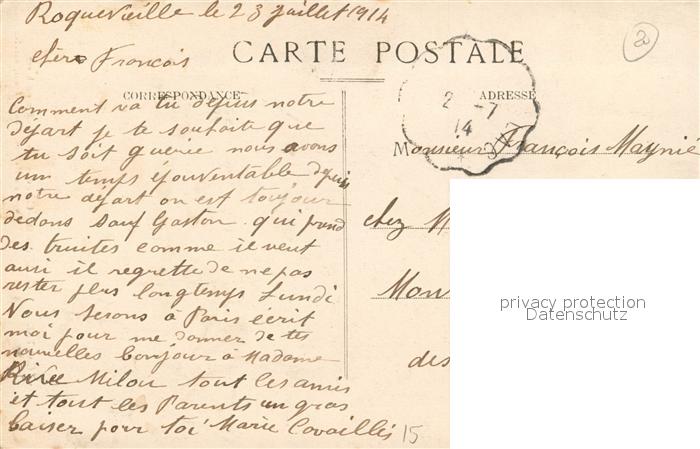 Roquevieille le 23 juillet 1914
chere Francois
CARTE POSTALE
CORRESPONDANCE
ADRESSE
Comment va tu depius notre
dejart je te souhaite que
tu soit guerie nous avons
um temps épouventable depuis
notre dejart on est toujour
dedans sauf Gaston qui prend
des truites comme il veut
ausi il regrette de ne pas
rester plus longtemps Lundi
Nous serons à Paris ecrit
moi pour me donner de tes
nouvelles bonjour à Madame
Milou tout les amis
et tout les Parents un gros
baiser pour toi Marie Covaillès
15
8
2 -7
14
Monsieur François Maynié
chez M
Mon
des
privacy protection
Datenschutz